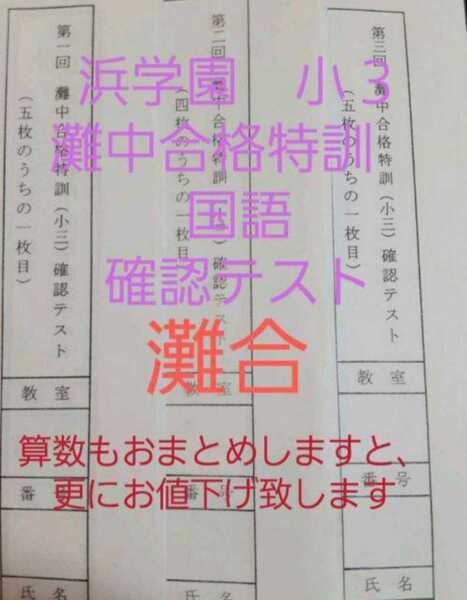 浜学園 小3
灘中合格特訓
国語
確認テスト
灘合
算数もおまとめしますと、
更にお値下げ致します
第三回 灘中合格特訓(小三)確認テスト
(五枚のうちの一枚目)
教室
番号
氏名
第二回 灘中合格特訓(小三)確認テスト
(四枚のうちの一枚目)
教室
番号
氏名
第一回 灘中合格特訓(小三)確認テスト
(五枚のうちの一枚目)
教室
番号
氏名